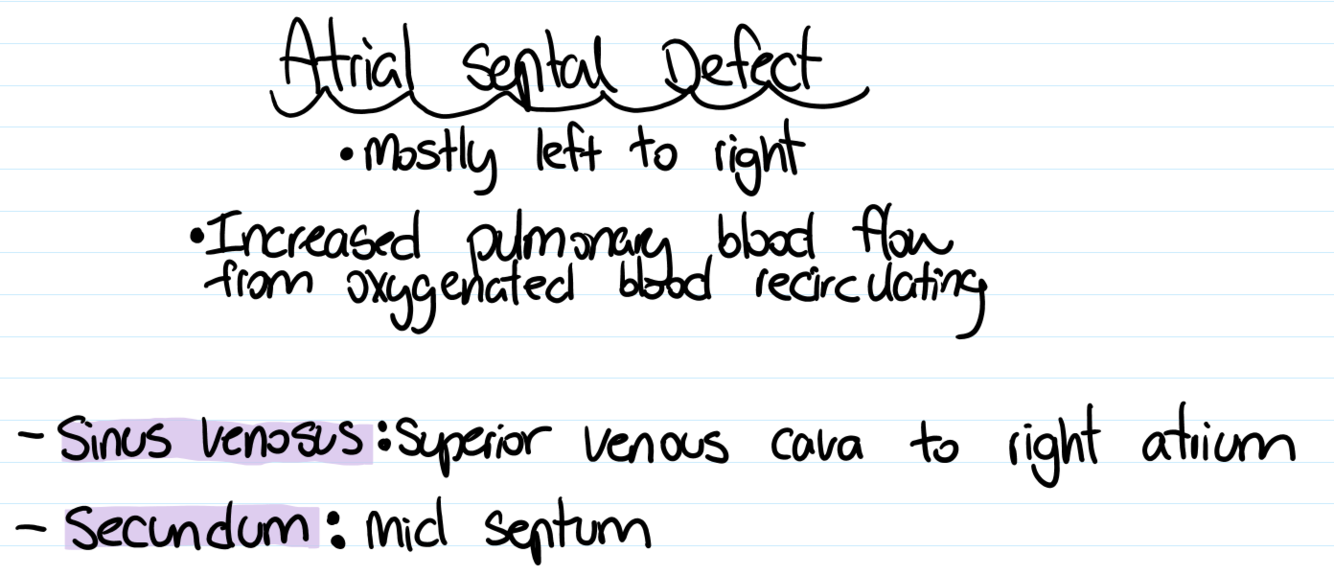 Atrial Septal Defect
• Mostly left to right
• Increased pulmonary blood flow
from oxygenated blood recirculating
- Sinus venosus: Superior venous cava to right atrium
- Secundum: mid septum